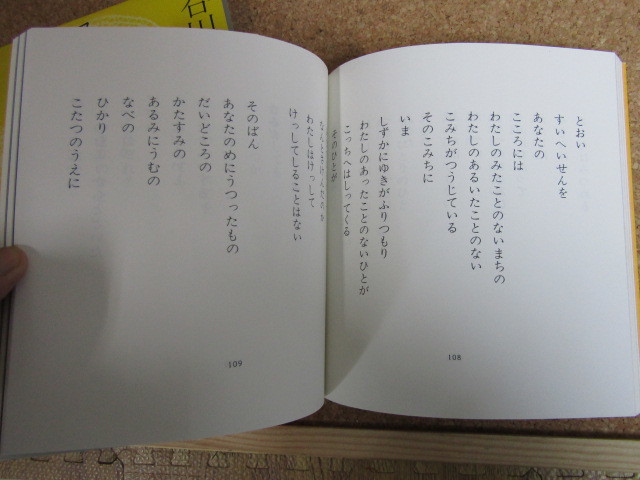 とおい
すいへいせんを
あなたの
こころには
わたしのみたことのないまちの
わたしのあるいたことのない
こみちがつうじている
そのこみちに
いま
しずかにゆきがふりつもり
わたしのあったことのないひとが
こっちへはしってくる
そのひとが
108
わたしはけっして
けっしてしることはない
そのばん
あなたのめにうつったもの
だいどころの
かたすみの
あるみにうむの
なべの
ひかり
こたつのうえに
109
石川